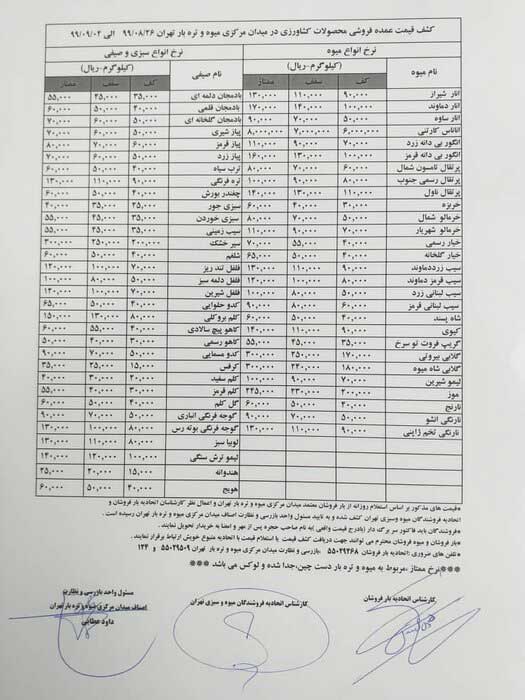 کشف قیمت عمده فروشی محصولات کشاورزی در میدان مرکزی میوه و تره بار تهران ۹۹/۰۸/۲۶ الی ۹۹/۰۹/۰۲
نرخ انواع میوه نرخ انواع سبزی و صیفی
نام میوه (کیلوگرم-ریال) نام صیفی (کیلوگرم-ریال)
کف سقف ممتاز کف سقف ممتاز
انار شیراز ۹۰,۰۰۰ ۱۱۰,۰۰۰ ۱۳۰,۰۰۰ بادمجان دلمه ای ۳۵,۰۰۰ ۴۵,۰۰۰ ۵۵,۰۰۰
انار دماوند ۱۰۰,۰۰۰ ۱۴۰,۰۰۰ ۱۷۰,۰۰۰ بادمجان قلمی ۴۰,۰۰۰ ۵۰,۰۰۰ ۶۰,۰۰۰
انار ساوه ۵۰,۰۰۰ ۷۰,۰۰۰ ۹۰,۰۰۰ بادمجان گلخانه ای ۵۰,۰۰۰ ۶۰,۰۰۰ ۷۰,۰۰۰
آناناس کارتنی ۶,۰۰۰,۰۰۰ ۷,۰۰۰,۰۰۰ ۸,۰۰۰,۰۰۰ پیاز شیری ۴۰,۰۰۰ ۵۰,۰۰۰ ۶۰,۰۰۰
انگور بی دانه زرد ۷۰,۰۰۰ ۹۰,۰۰۰ ۱۱۰,۰۰۰ پیاز قرمز ۶۰,۰۰۰ ۷۰,۰۰۰ ۸۰,۰۰۰
انگور بی دانه قرمز ۱۰۰,۰۰۰ ۱۳۰,۰۰۰ ۱۶۰,۰۰۰ پیاز زرد ۵۰,۰۰۰ ۶۰,۰۰۰ ۷۰,۰۰۰
پرتقال تامسون شمال ۶۰,۰۰۰ ۷۰,۰۰۰ ۸۰,۰۰۰ ترب سیاه ۴۰,۰۰۰ ۵۰,۰۰۰ ۶۰,۰۰۰
پرتقال رسمی جنوب ۸۰,۰۰۰ ۹۰,۰۰۰ ۱۰۰,۰۰۰ تره فرنگی ۹۰,۰۰۰ ۱۱۰,۰۰۰ ۱۳۰,۰۰۰
پرتقال ناول ۱۱۰,۰۰۰ ۱۳۰,۰۰۰ ۱۴۰,۰۰۰ چغندر بورش ۴۰,۰۰۰ ۵۰,۰۰۰ ۶۰,۰۰۰
خربزه ۳۰,۰۰۰ ۴۰,۰۰۰ ۶۰,۰۰۰ سبزی جور ۲۵,۰۰۰ ۳۵,۰۰۰ ۴۰,۰۰۰
خرمالو شمال ۵۰,۰۰۰ ۷۰,۰۰۰ ۸۰,۰۰۰ سبزی خوردن ۳۵,۰۰۰ ۴۵,۰۰۰ ۵۵,۰۰۰
خرمالو شهریار ۷۰,۰۰۰ ۹۰,۰۰۰ ۱۱۰,۰۰۰ سیب زمینی ۳۵,۰۰۰ ۴۵,۰۰۰ ۵۵,۰۰۰
خیار رسمی ۴۰,۰۰۰ ۵۵,۰۰۰ ۷۰,۰۰۰ سیر خشک ۲۰۰,۰۰۰ ۲۵۰,۰۰۰ ۳۰۰,۰۰۰
خیار گلخانه ۴۰,۰۰۰ ۵۰,۰۰۰ ۶۵,۰۰۰ شلغم ۴۰,۰۰۰ ۵۰,۰۰۰ ۶۰,۰۰۰
سیب زرددماوند ۹۰,۰۰۰ ۱۱۰,۰۰۰ ۱۳۰,۰۰۰ فلفل تند ریز ۷۰,۰۰۰ ۱۰۰,۰۰۰ ۱۲۰,۰۰۰
سیب قرمز دماوند ۸۰,۰۰۰ ۱۰۰,۰۰۰ ۱۲۰,۰۰۰ فلفل دلمه سبز ۵۰,۰۰۰ ۸۰,۰۰۰ ۱۰۰,۰۰۰
سیب لبنانی زرد ۵۰,۰۰۰ ۸۰,۰۰۰ ۱۰۰,۰۰۰ فلفل شیرین ۷۰,۰۰۰ ۱۰۰,۰۰۰ ۱۴۰,۰۰۰
سیب لبنانی قرمز ۶۰,۰۰۰ ۸۰,۰۰۰ ۹۰,۰۰۰ کدو حلوایی ۴۰,۰۰۰ ۵۰,۰۰۰ ۶۵,۰۰۰
شاه پسند ۴۰,۰۰۰ ۵۰,۰۰۰ ۶۰,۰۰۰ کلم بروکلی ۸۰,۰۰۰ ۱۳۰,۰۰۰ ۱۵۰,۰۰۰
کیوی ۹۰,۰۰۰ ۱۱۰,۰۰۰ ۱۴۰,۰۰۰ کاهو پیچ سالادی ۴۰,۰۰۰ ۵۵,۰۰۰ ۶۰,۰۰۰
گریپ فروت تو سرخ ۳۵,۰۰۰ ۴۵,۰۰۰ ۵۵,۰۰۰ کاهو رسمی ۳۰,۰۰۰ ۴۰,۰۰۰ ۵۰,۰۰۰
گلابی بیروتی ۱۷۰,۰۰۰ ۲۵۰,۰۰۰ ۳۰۰,۰۰۰ کدو مسمایی ۵۰,۰۰۰ ۷۰,۰۰۰ ۹۰,۰۰۰
گلابی شاه میوه ۱۸۰,۰۰۰ ۲۴۰,۰۰۰ ۳۰۰,۰۰۰ کرفس ۱۵,۰۰۰ ۲۵,۰۰۰ ۳۵,۰۰۰
لیمو شیرین ۷۰,۰۰۰ ۹۰,۰۰۰ ۱۰۰,۰۰۰ کلم سفید ۲۰,۰۰۰ ۳۰,۰۰۰ ۴۰,۰۰۰
موز ۲۰۰,۰۰۰ ۲۳۰,۰۰۰ ۲۴۵,۰۰۰ کلم قرمز ۴۰,۰۰۰ ۴۰,۰۰۰ ۵۵,۰۰۰
نارنج ۴۰,۰۰۰ ۵۰,۰۰۰ ۶۰,۰۰۰ گل کلم ۴۰,۰۰۰ ۵۰,۰۰۰ ۶۰,۰۰۰
نارنگی انشو ۵۰,۰۰۰ ۷۰,۰۰۰ ۹۰,۰۰۰ گوجه فرنگی انباری ۵۰,۰۰۰ ۷۰,۰۰۰ ۹۰,۰۰۰
نارنگی تخم ژاپنی ۹۰,۰۰۰ ۱۱۰,۰۰۰ ۱۳۰,۰۰۰ گوجه فرنگی بوته رس ۸۰,۰۰۰ ۱۰۰,۰۰۰ ۱۳۰,۰۰۰
لوبیا سبز ۸۰,۰۰۰ ۱۱۰,۰۰۰ ۱۳۰,۰۰۰
لیمو ترش سنگی ۱۰۰,۰۰۰ ۱۲۰,۰۰۰ ۱۴۰,۰۰۰
هندوانه ۱۵,۰۰۰ ۲۰,۰۰۰ ۲۵,۰۰۰
هویج ۴۰,۰۰۰ ۵۰,۰۰۰ ۶۰,۰۰۰
*قیمت های مذکور بر اساس استعلام روزانه از بار فروشان معتمد میدان مرکزی میوه و تره بار تهران و اعمال نظر کارشناسان اتحادیه بار فروشان و
اتحادیه فروشندگان میوه وسبزی تهران کشف شده و به تایید مسئول واحد بازرسی و نظارت اصناف میدان مرکزی میوه و تره بار تهران رسیده است .
*فروشندگان باید فاکتور سر برگ دار (بادرج قیمت واقعی )به نام صاحب حجره پس از مهر و امضا به خریدار تحویل نمایند .
*بار فروشان و میوه فروشان محترم می توانند جهت دریافت کشف قیمت با استعلام قیمت با اتحادیه متبوع خویش ارتباط برقرار نمایند .
*تلفن های ضروری : اتحادیه بار فروشان ۵۵۰۴۹۳۶۸ .بازرسی و نظارت میدان مرکزی میوه و تره بار تهران ۵۵۰۲۹۵۰۹ و ۱۲۴
***نرخ ممتاز ،مربوط به میوه و تره بار دست چین،جدا شده و لوکس می باشد ***
کارشناس اتحادیه بار فروشان
کارشناس اتحادیه فروشندگان میوه و سبزی تهران
مسئول واحد بازرسی و نظارت
اصناف میدان مرکزی میوه و تره بار تهران
داود عطایی